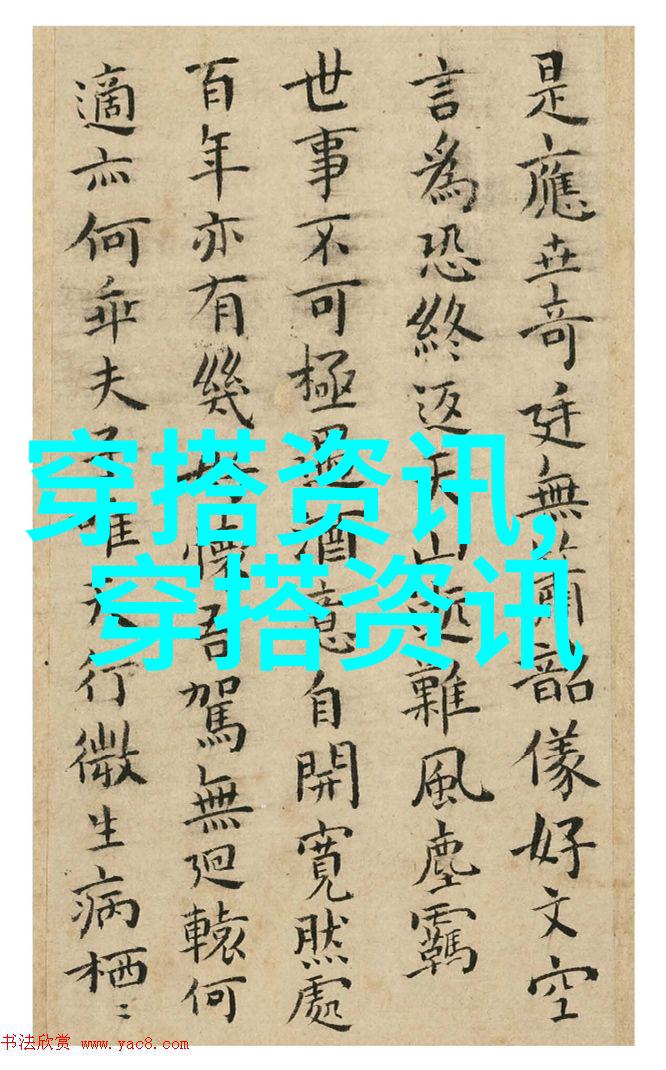 是應世奇廷無韶儀好文空
言爲恐終返山難風塵羈
世事不可極酒意自開寬然處
百年亦有幾懷吾駕無迴轅何
適亦何乖夫行微生病栖〻
穿搭资讯,
穿搭资讯
书法欣赏 www.yac8.com